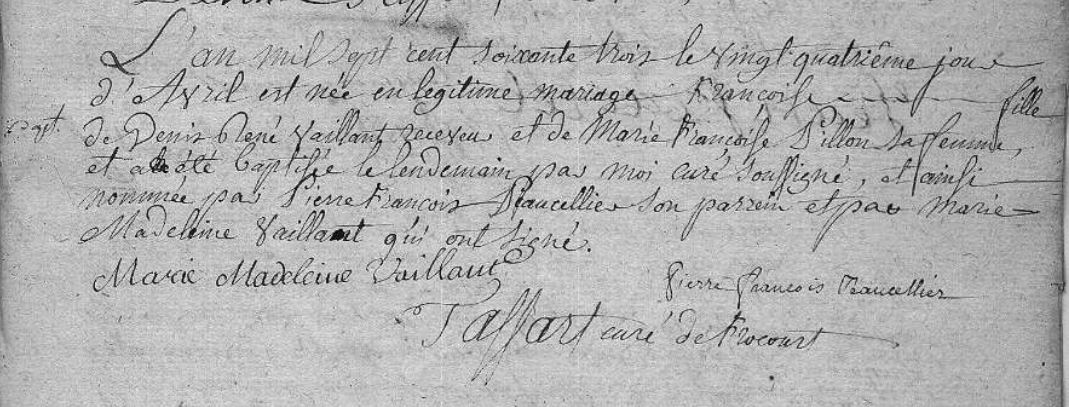 L'an mil sept cent soixante trois le vingt quatriême jour
d'Avril est née en legitime mariage Françoise fille
Bapt.
de Denis René Vaillant receveur et de Marie Françoise Pillon sa femme,
et a été baptisée le lendemain par moi curé soussigné, et ainsi
nommée par Pierre François Peaucellier son parrein et par Marie
Madeleine Vaillant qui ont signé.
Marie Madeleine Vaillant
Pierre François Peaucellier
Taffart curé de Frocourt